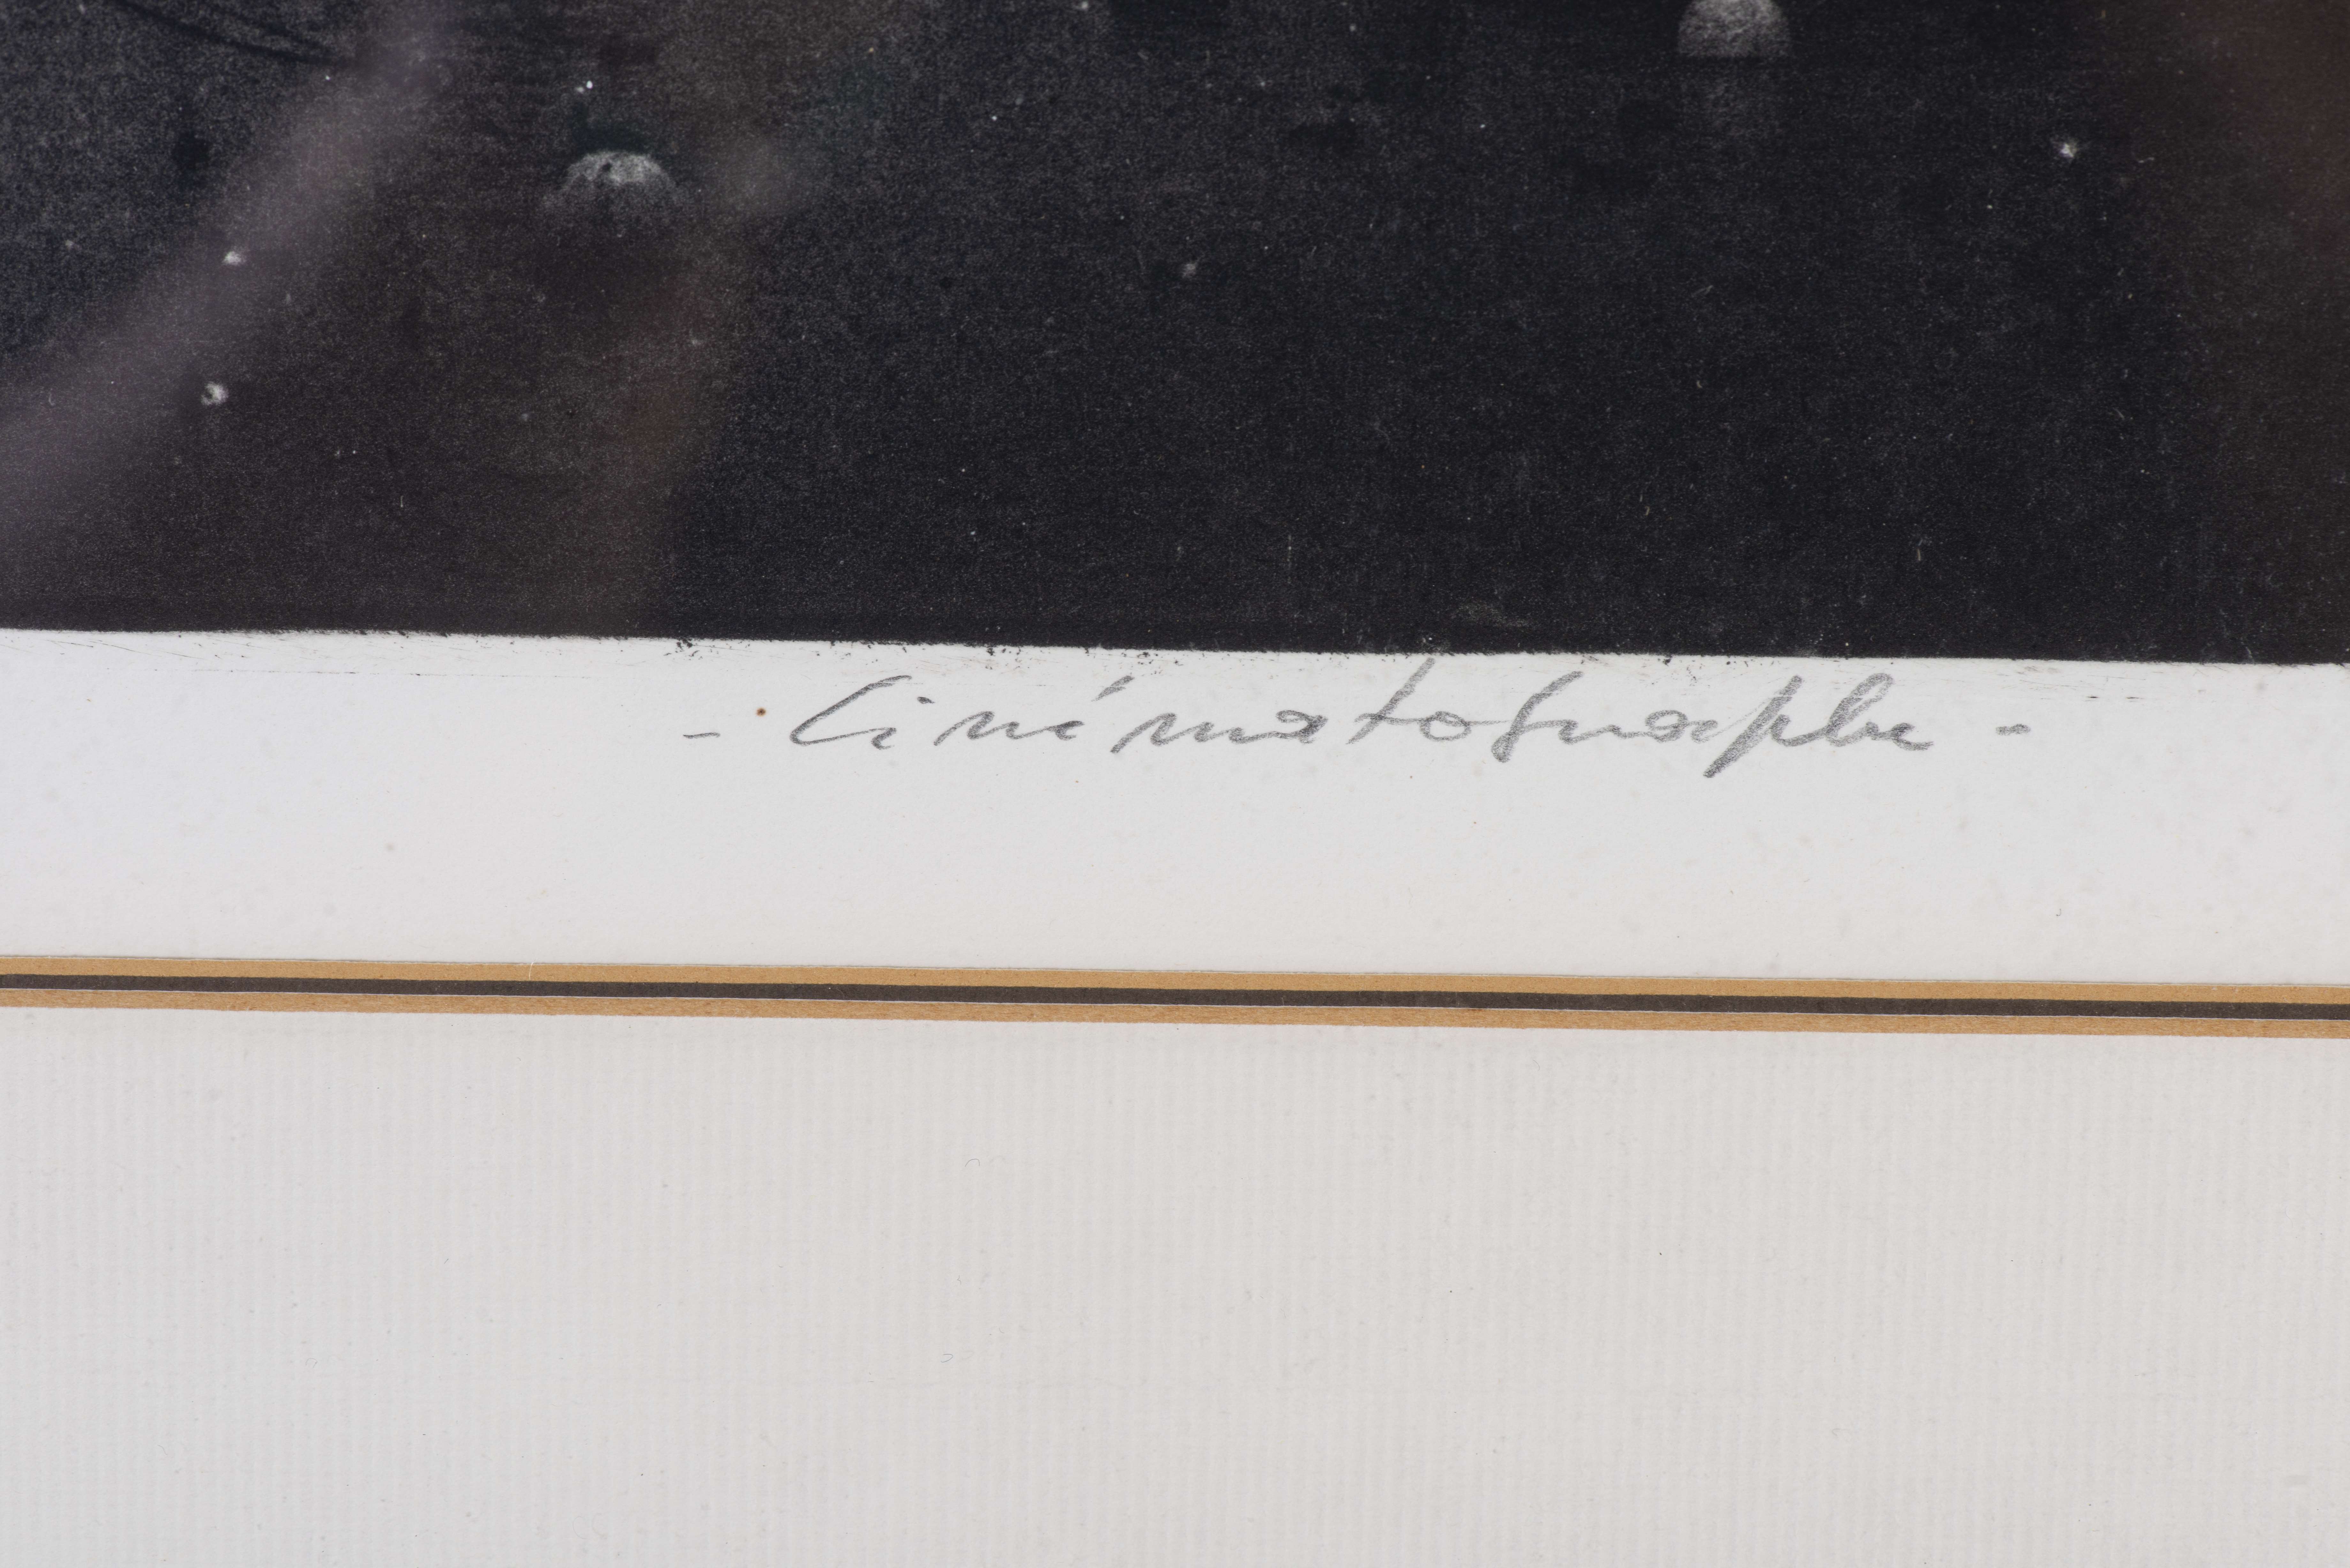 - Cinématographe -